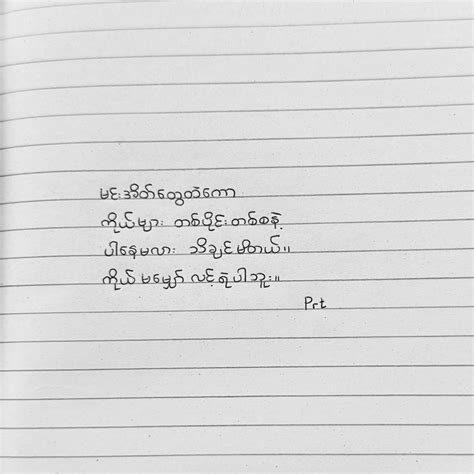 မင်းအိတ်တွေထဲကော
ကိုယ်များ တစ်ပိုင်းတစ်စနဲ့
ပါနေမလား သိချင်မိတယ်။
ကိုယ် မမျှော် လင့်ရဲပါဘူး။
Prt